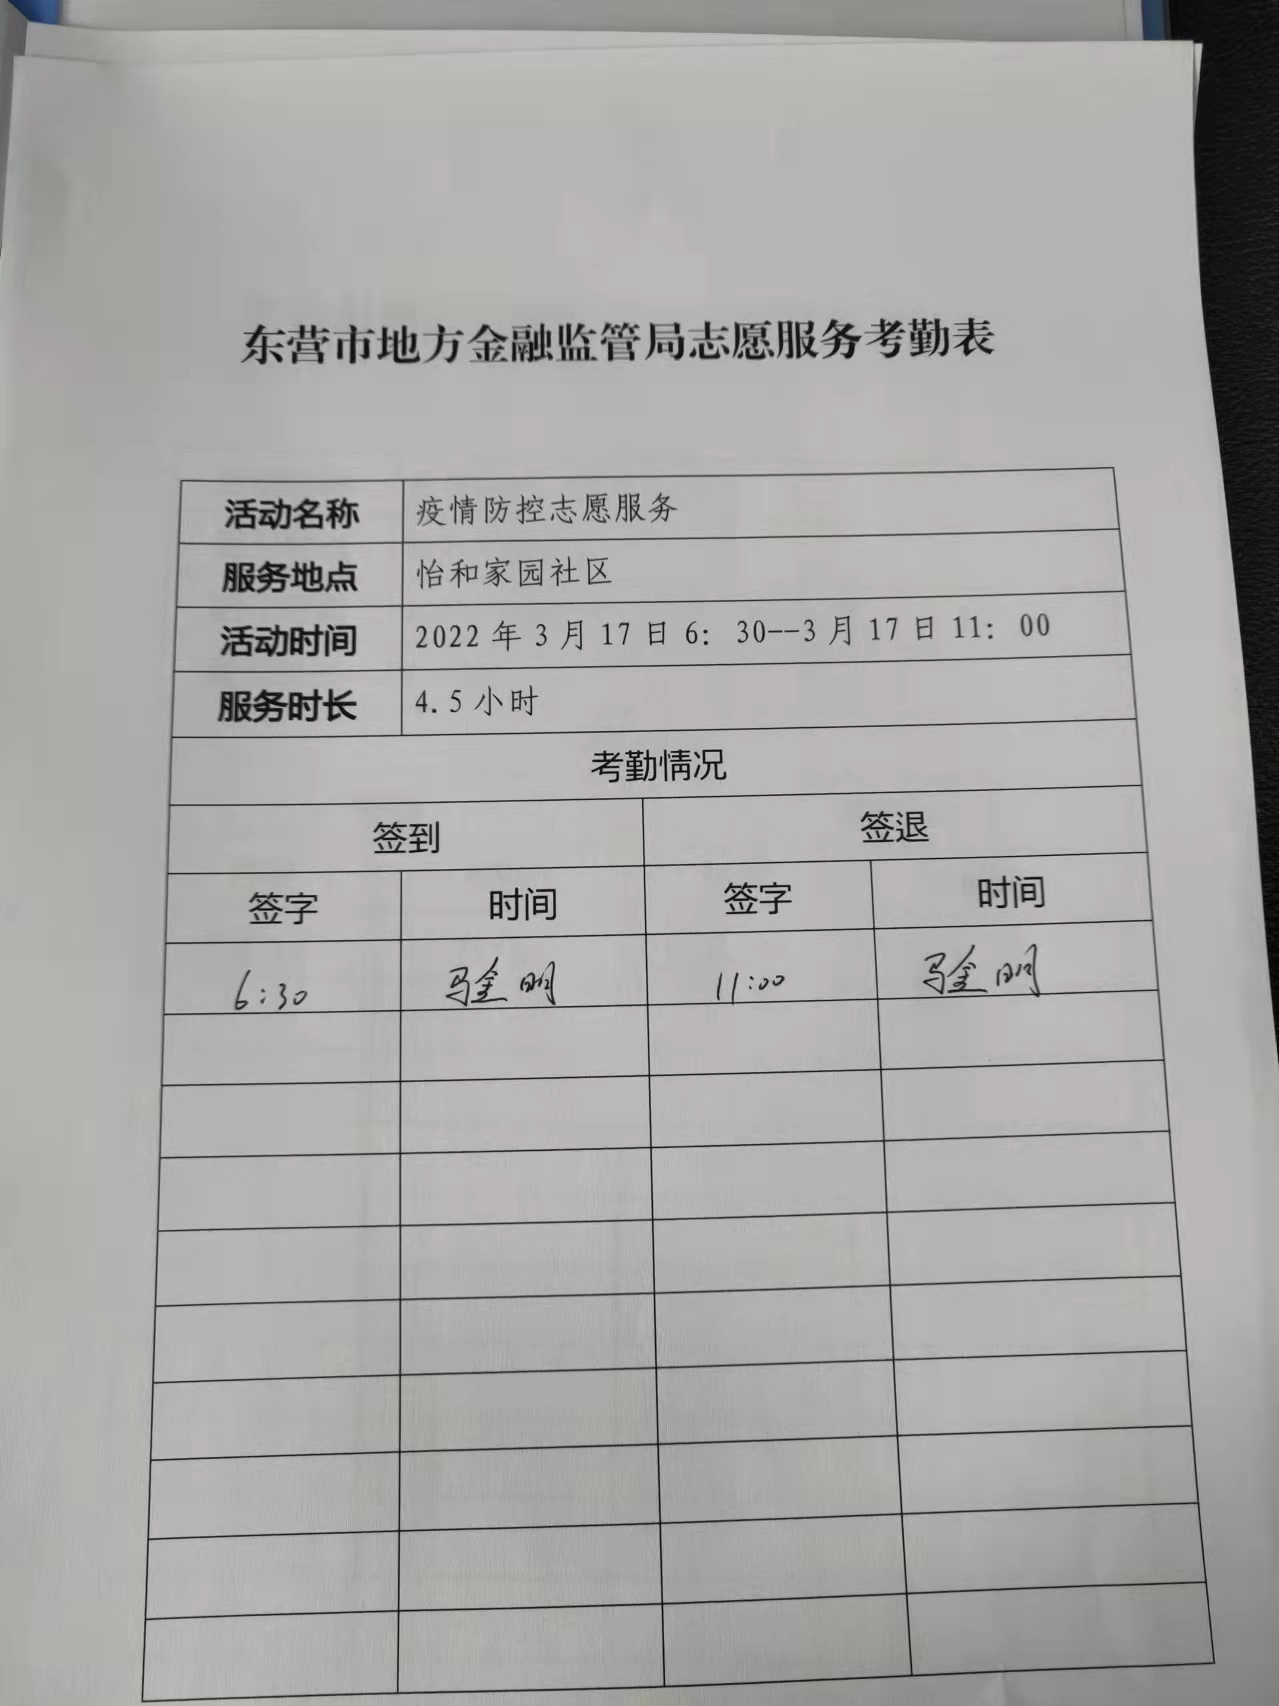 东营市地方金融监管局志愿服务考勤表
活动名称 疫情防控志愿服务
服务地点 怡和家园社区
活动时间 2022年3月17日6：30--3月17日11：00
服务时长 4.5小时
考勤情况
签到 签退
签字 时间 签字 时间
6:30 马金明 11:00 马金明